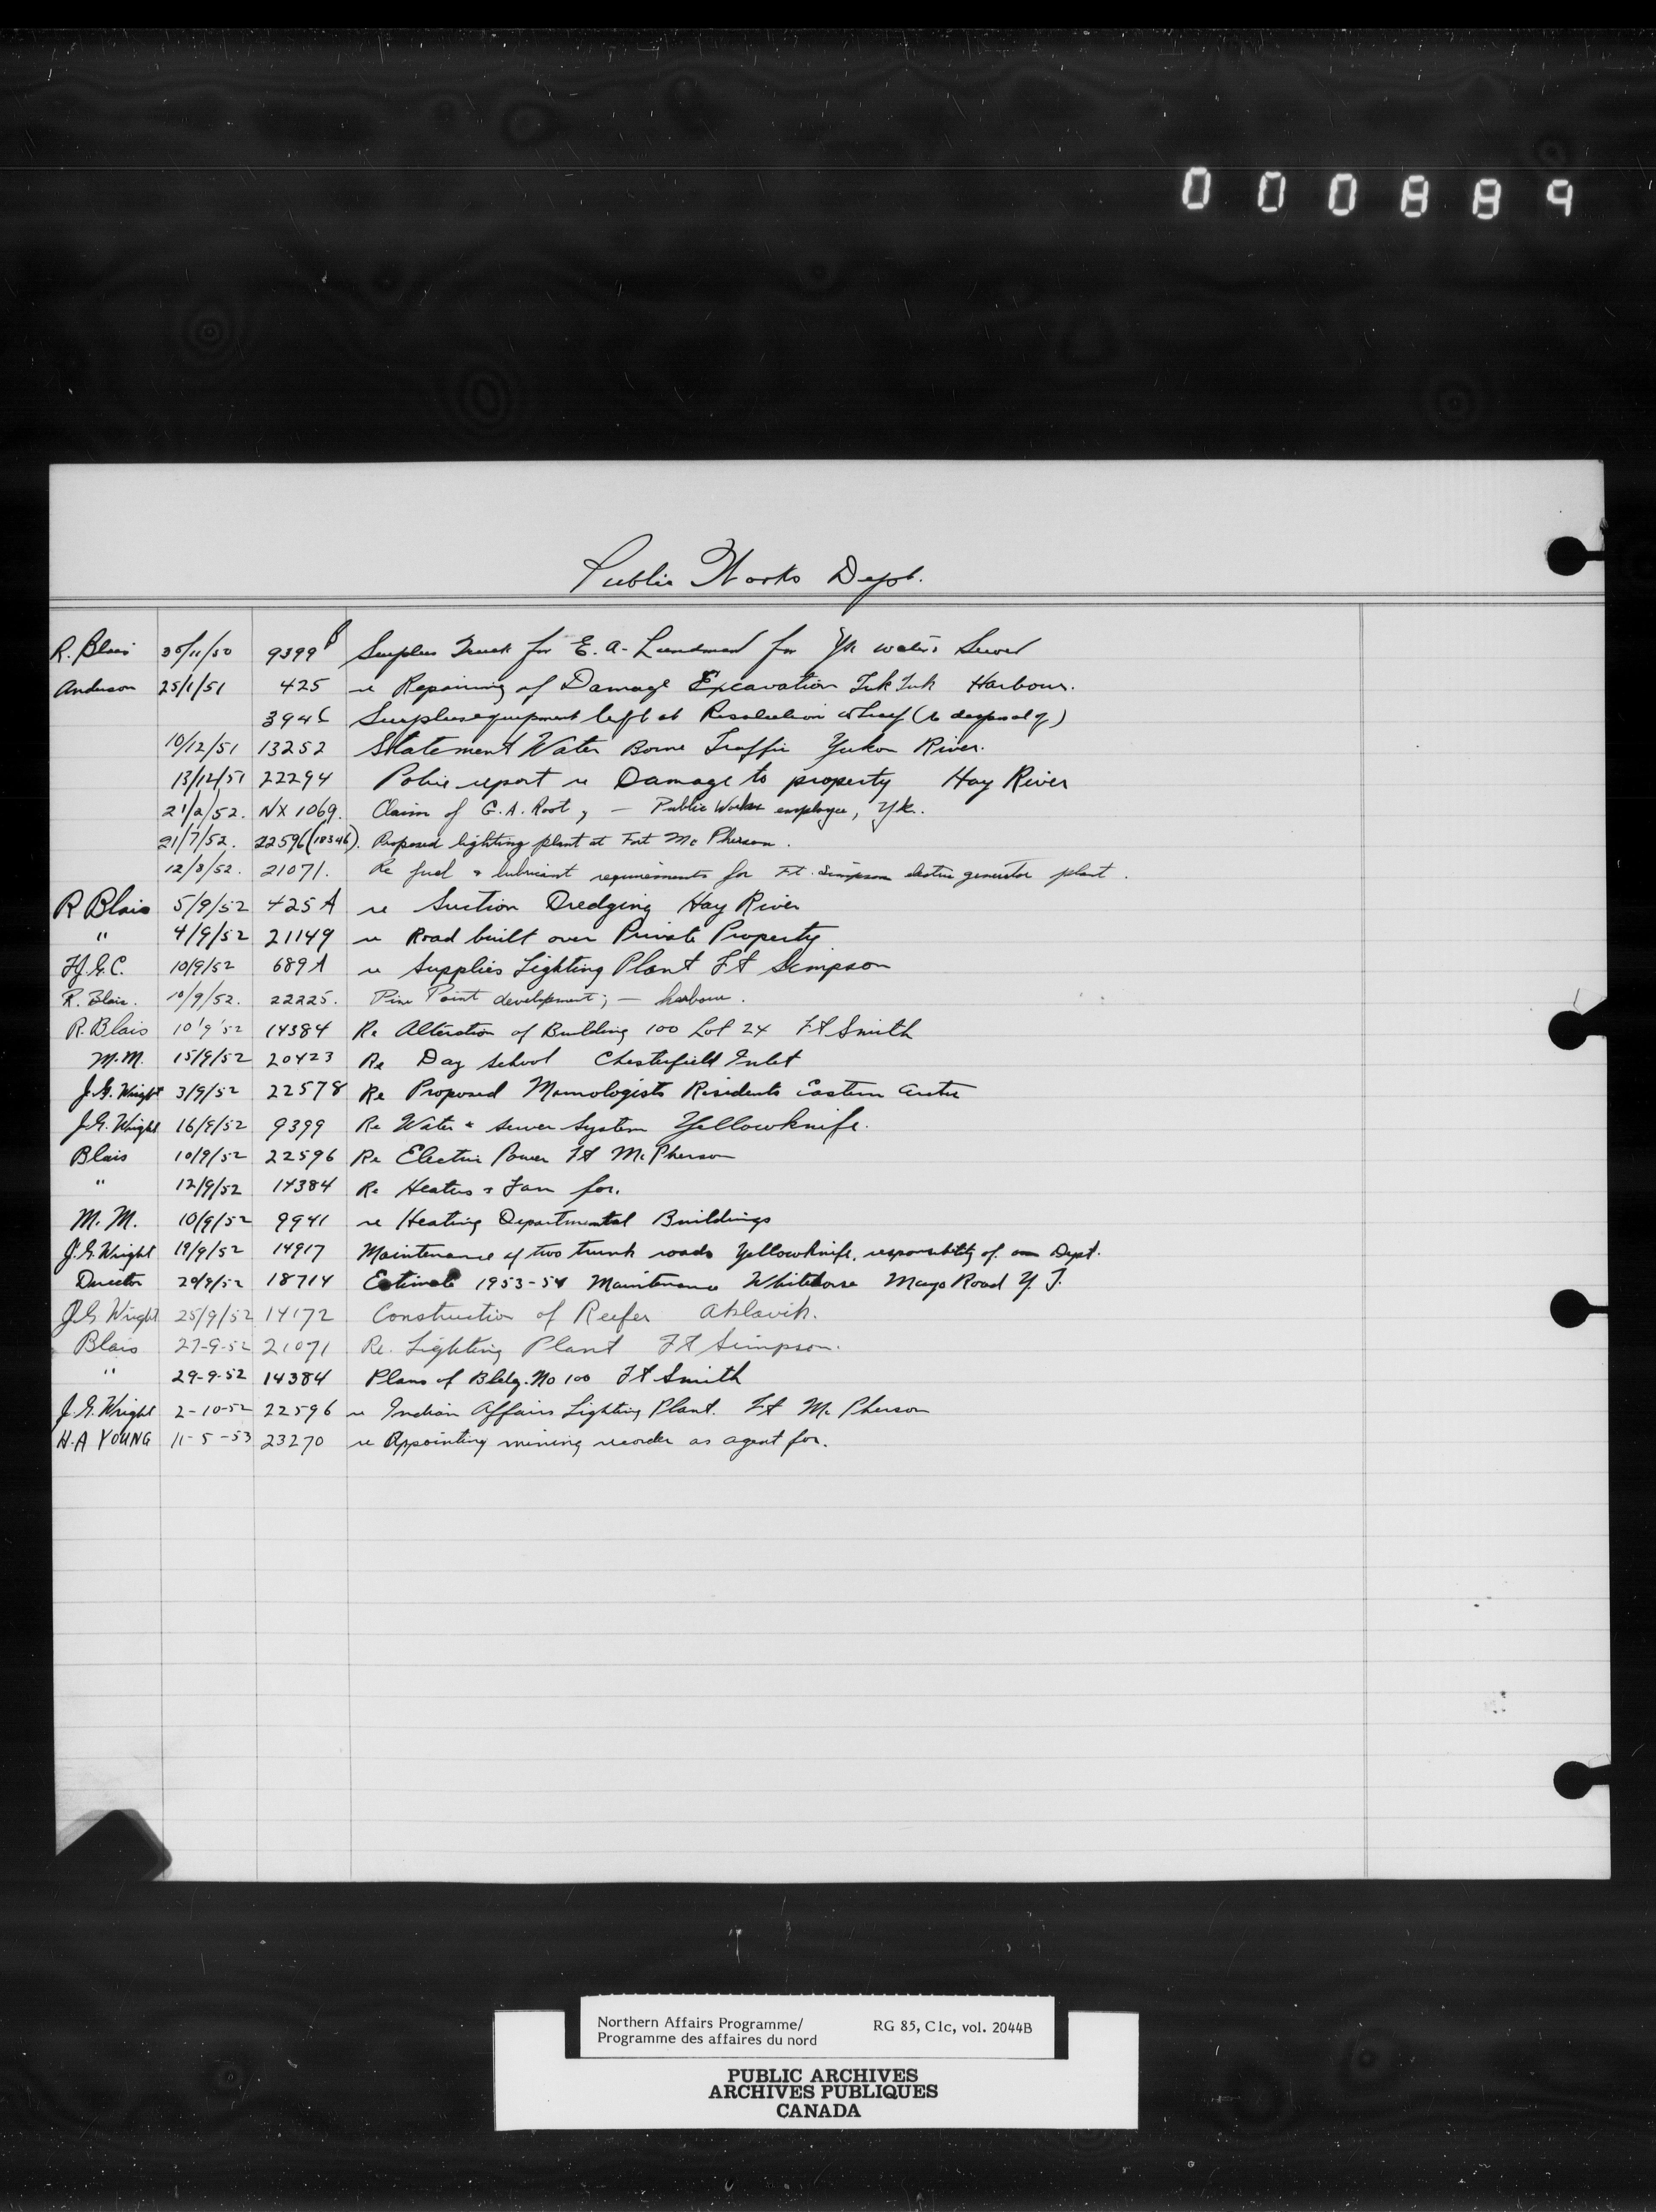 000889
Public Works Dept.
R. Blais 30/11/50 9399 B Surplus Truck for E. A. for Yk water & Sewer
Anderson 25/1/51 425 re Repairing of Damage Excavation Tuk Tuk Harbour.
Surplus equipment left at Resolution wharf (re disposal of)
10/12/51 13252 Statement Water Borne Traffic Yukon River.
13/12/51 22294 Police report re Damage to property Hay River
21/2/52. NX 1069. Claim of G. A. Root, — Public Works employee, Yk.
21/7/52. 22596 (18346). Proposed lighting plant at Fort Mc Pherson.
12/8/52. 21071. Re fuel & lubricant requirements for Ft. Simpson electric generator plant.
R Blais 5/9/52 425 A re Suction Dredging Hay River
" 4/9/52 21149 re Road built over Private Property
10/9/52 689 A re Supplies Lighting Plant Ft Simpson
R. Blais. 10/9/52. 22225. Pine Point development; — harbour.
R. Blais 10/9/52 14384 Re Alteration of Building 100 Lot 24 Ft Smith
M. M. 15/9/52 20423 Re Day School Chesterfield Inlet
J. G. Wright 3/9/52 22578 Re Proposed Residents Eastern Arctic
J. G. Wright 16/9/52 9399 Re Water & Sewer System Yellowknife.
Blais 10/9/52 22596 Re Electric Power Ft Mc Pherson
" 12/9/52 14384 Re Heaters & Fan for.
M. M. 10/9/52 9941 re Heating Departmental Buildings
J. G. Wright 19/9/52 14917 Maintenance of two trunk roads Yellowknife, responsibility of our Dept.
Director 29/9/52 18714 Estimate 1953-54 Maintenance Whitehorse Mayo Road Y. T.
J. G. Wright 25/9/52 14172 Construction of Reefer Aklavik.
Blais 27-9-52 21071 Re. Lighting Plant Ft Simpson.
" 29-9-52 14384 Plans of Bldg. No 100 Ft Smith
J. G. Wright 2-10-52 22596 re Indian Affairs Lighting Plant. Ft Mc Pherson
H. A YOUNG 11-5-53 23270 re Appointing mining recorder as agent for.
Northern Affairs Programme/ RG 85, C1c, vol. 2044B
Programme des affaires du nord
PUBLIC ARCHIVES
ARCHIVES PUBLIQUES
CANADA